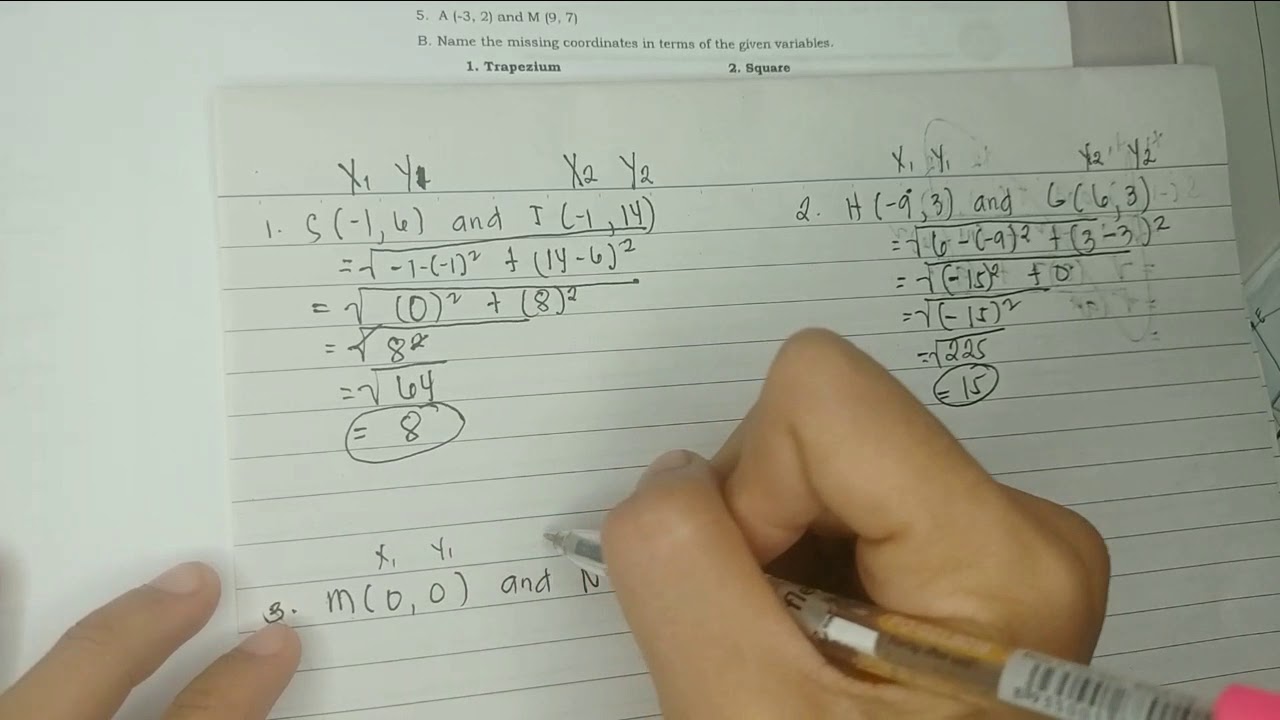 5. A (-3, 2) and M (9, 7)
B. Name the missing coordinates in terms of the given variables.
1. Trapezium
2. Square
X₁ Y₁ X₂ Y₂
1. S(-1, 6) and I(-1, 14)
=√-1-(-1)² + (14-6)²
= √(0)² + (8)²
= √8²
=√64
= 8
X₁ Y₁ X₂ Y₂
2. H(-9, 3) and G(6, 3)
=√6-(-9)² + (3-3)²
=√(-15)² + 0
=√(-15)²
=√225
= 15
X₁ Y₁
3. M(0, 0) and N